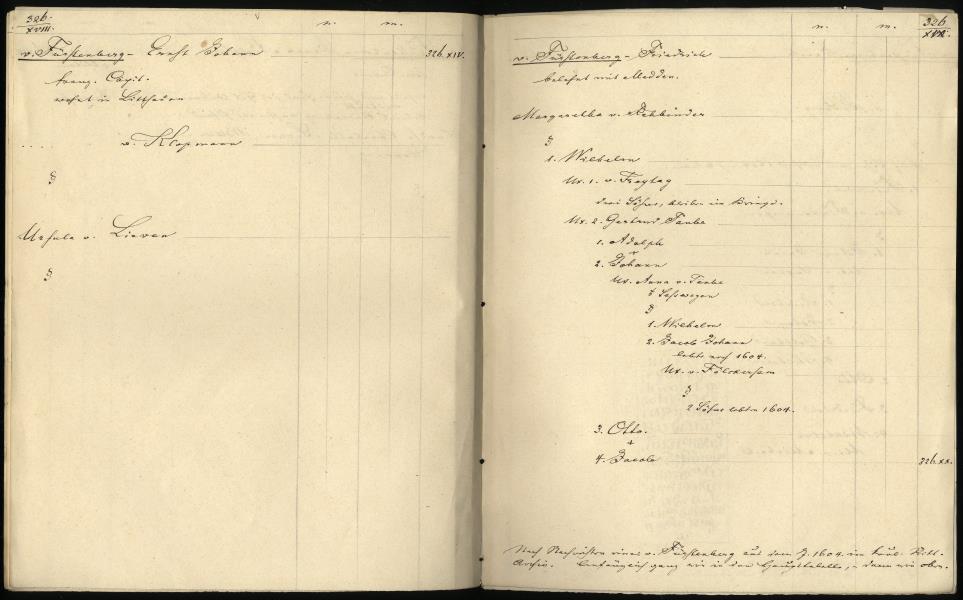 326.
XVIII.
n.
m.
v. Fürstenberg - Ernst Johann
326. XIV.
franz. Capit.
wohnt in Litthauen
v. Klopmann
§
Ursula v. Lieven
§
n.
m.
326
v. Fürstenberg - Friedrich
belehnt mit Medden.
Margaretha v. Rehbinder
§
1. Wilhelm
Ux. 1. v. Freytag
drei Söhne, blieben im Kriege.
Ux. 2. Gertrud Taube
1. Adolph
+
2. Johann
Ux. Anna v. Taube
§
1. Wilhelm
2. Jacob Johann
lebte noch 1604.
Ux. v. Fölckersam
§
2 Söhne lebten 1604.
3. Otto.
+
4. Jacob
326. XX.
Nach Nachrichten eines v. Fürstenberg aus dem J. 1604 im kurl. Ritt.
Archiv. ganz wie in der Haupttabelle, dann wie oben.